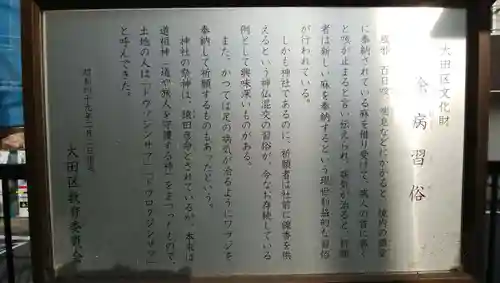 大田区文化財
治病習俗
風邪、百日咳、喘息などにかかると、境内の鹿島
に奉納されている麻を借り受けて、病人の首に巻く
と咳が止まると言い伝えられ、病気が治ると、祈願
者は新しい麻を奉納するという現世利益的な習俗
が行われている。
しかも神社であるのに、祈願者は社前に線香を供
えるという神仏混交の習俗が、今なお存続している
例として興味深いものがある。
また、かつては足の病気が治るようにワラジを
奉納して祈願するものもあったという。
神社の祭神は、猿田彦命とされているが、本来は
道祖神(道や旅人を守護する神)をまつったもので、
土地の人は「ドウソジンサマ」「ドウロクジンサマ」
と呼んできた。
昭和四十九年二月二日指定
大田区教育委員会